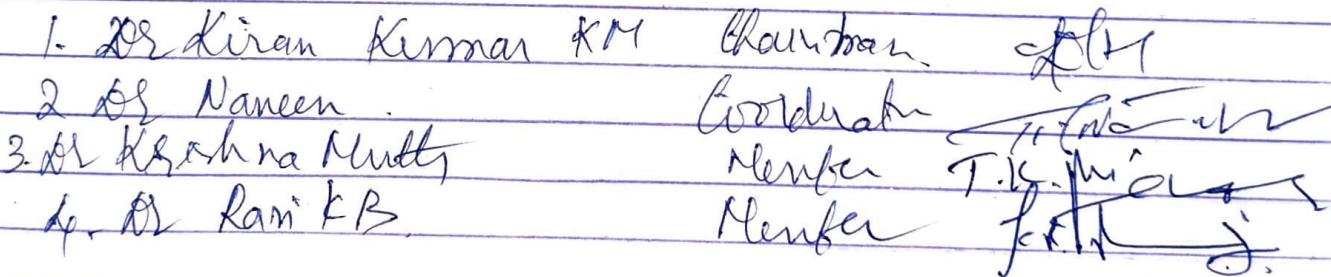 1. Dr Kiran Kumar KM Chairman.
2 Dr Naveen. Coordinator
3. Dr Krishna Murthy Member T.K.
4. Dr Ravi KB. Member